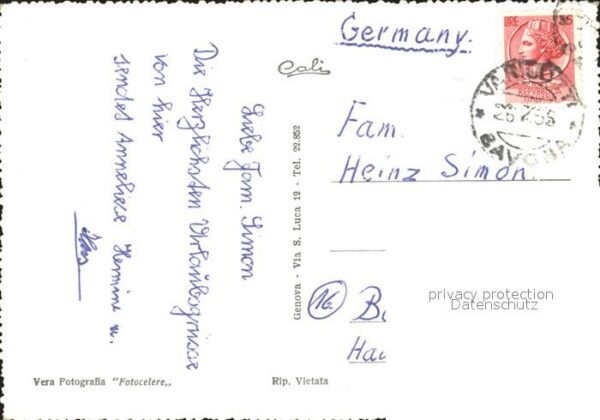 Liebe Fam. Simon
Die Herzlichsten Urlaubsgrüsse
von hier
sendet Anneliese Hermine u.
Germany.
Cali
LIRE 35
VARIGOTTI
26.7.56
SAVONA
Fam.
Heinz Simon.
16
B
Ha
privacy protection
Datenschutz
Genova - Via S. Luca 12 - Tel. 22.852
Vera Fotografia "Fotocelere„
Rip. Vietata